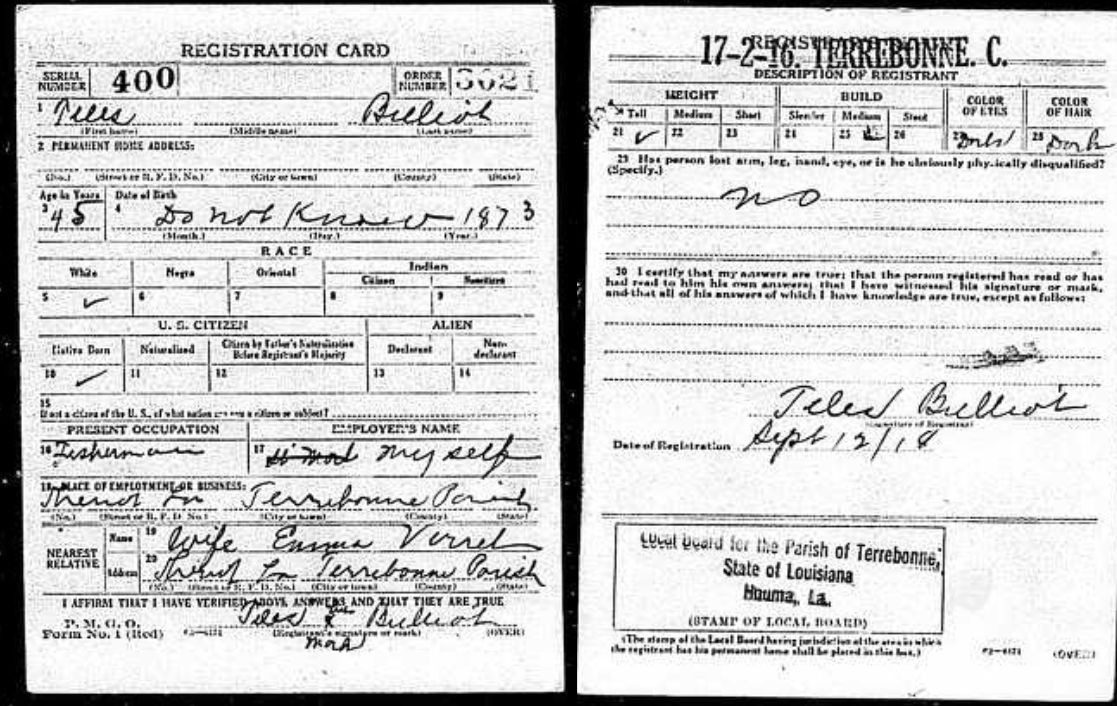 REGISTRATION CARD
SERIAL NUMBER 400 ORDER NUMBER
1 Teles Billiot
(First name) (Middle name) (Last name)
2 PERMANENT HOME ADDRESS:
(No.) (Street or R. F. D. No.) (City or town) (County) (State)
Age in Years Date of Birth
3 45 4 Do not Know 1873
(Month.) (Day.) (Year.)
RACE
White Negro Oriental Indian
Citizen Noncitizen
5 ✓ 6 7 8 9
U. S. CITIZEN ALIEN
Native Born Naturalized Citizen by Father's Naturalization Before Registrant's Majority Declarant Non-declarant
10 ✓ 11 12 13 14
15
If not a citizen of the U. S., of what nation are you a citizen or subject?
PRESENT OCCUPATION EMPLOYER'S NAME
16 Fisherman 17 my self
18 PLACE OF EMPLOYMENT OR BUSINESS:
La Terrebonne Parish
(No.) (Street or R. F. D. No.) (City or town) (County) (State)
NEAREST RELATIVE Name 19 Wife Emma Verret
Address 20 La Terrebonne Parish
(No.) (Street or R. F. D. No.) (City or town) (County) (State)
I AFFIRM THAT I HAVE VERIFIED ABOVE ANSWERS AND THAT THEY ARE TRUE
P. M. G. O.
Form No. 1 (Red) Teles X Billiot
(Registrant's signature or mark) (OVER)
mark
REGISTRAR'S
17-2-16. TERREBONNE. C.
DESCRIPTION OF REGISTRANT
HEIGHT BUILD COLOR OF EYES COLOR OF HAIR
Tall Medium Short Slender Medium Stout
21 ✓ 22 23 24 25 26 27 28 Dark
29 Has person lost arm, leg, hand, eye, or is he obviously physically disqualified?
(Specify.)
no
30 I certify that my answers are true; that the person registered has read or has
had read to him his own answers; that I have witnessed his signature or mark,
and that all of his answers of which I have knowledge are true, except as follows:
Teles Billiot
(Signature of Registrar)
Date of Registration Sept 12/18
Local Board for the Parish of Terrebonne,
State of Louisiana
Houma, La.
(STAMP OF LOCAL BOARD)
(The stamp of the Local Board having jurisdiction of the area in which
the registrant has his permanent home shall be placed in this box.)
(OVER)